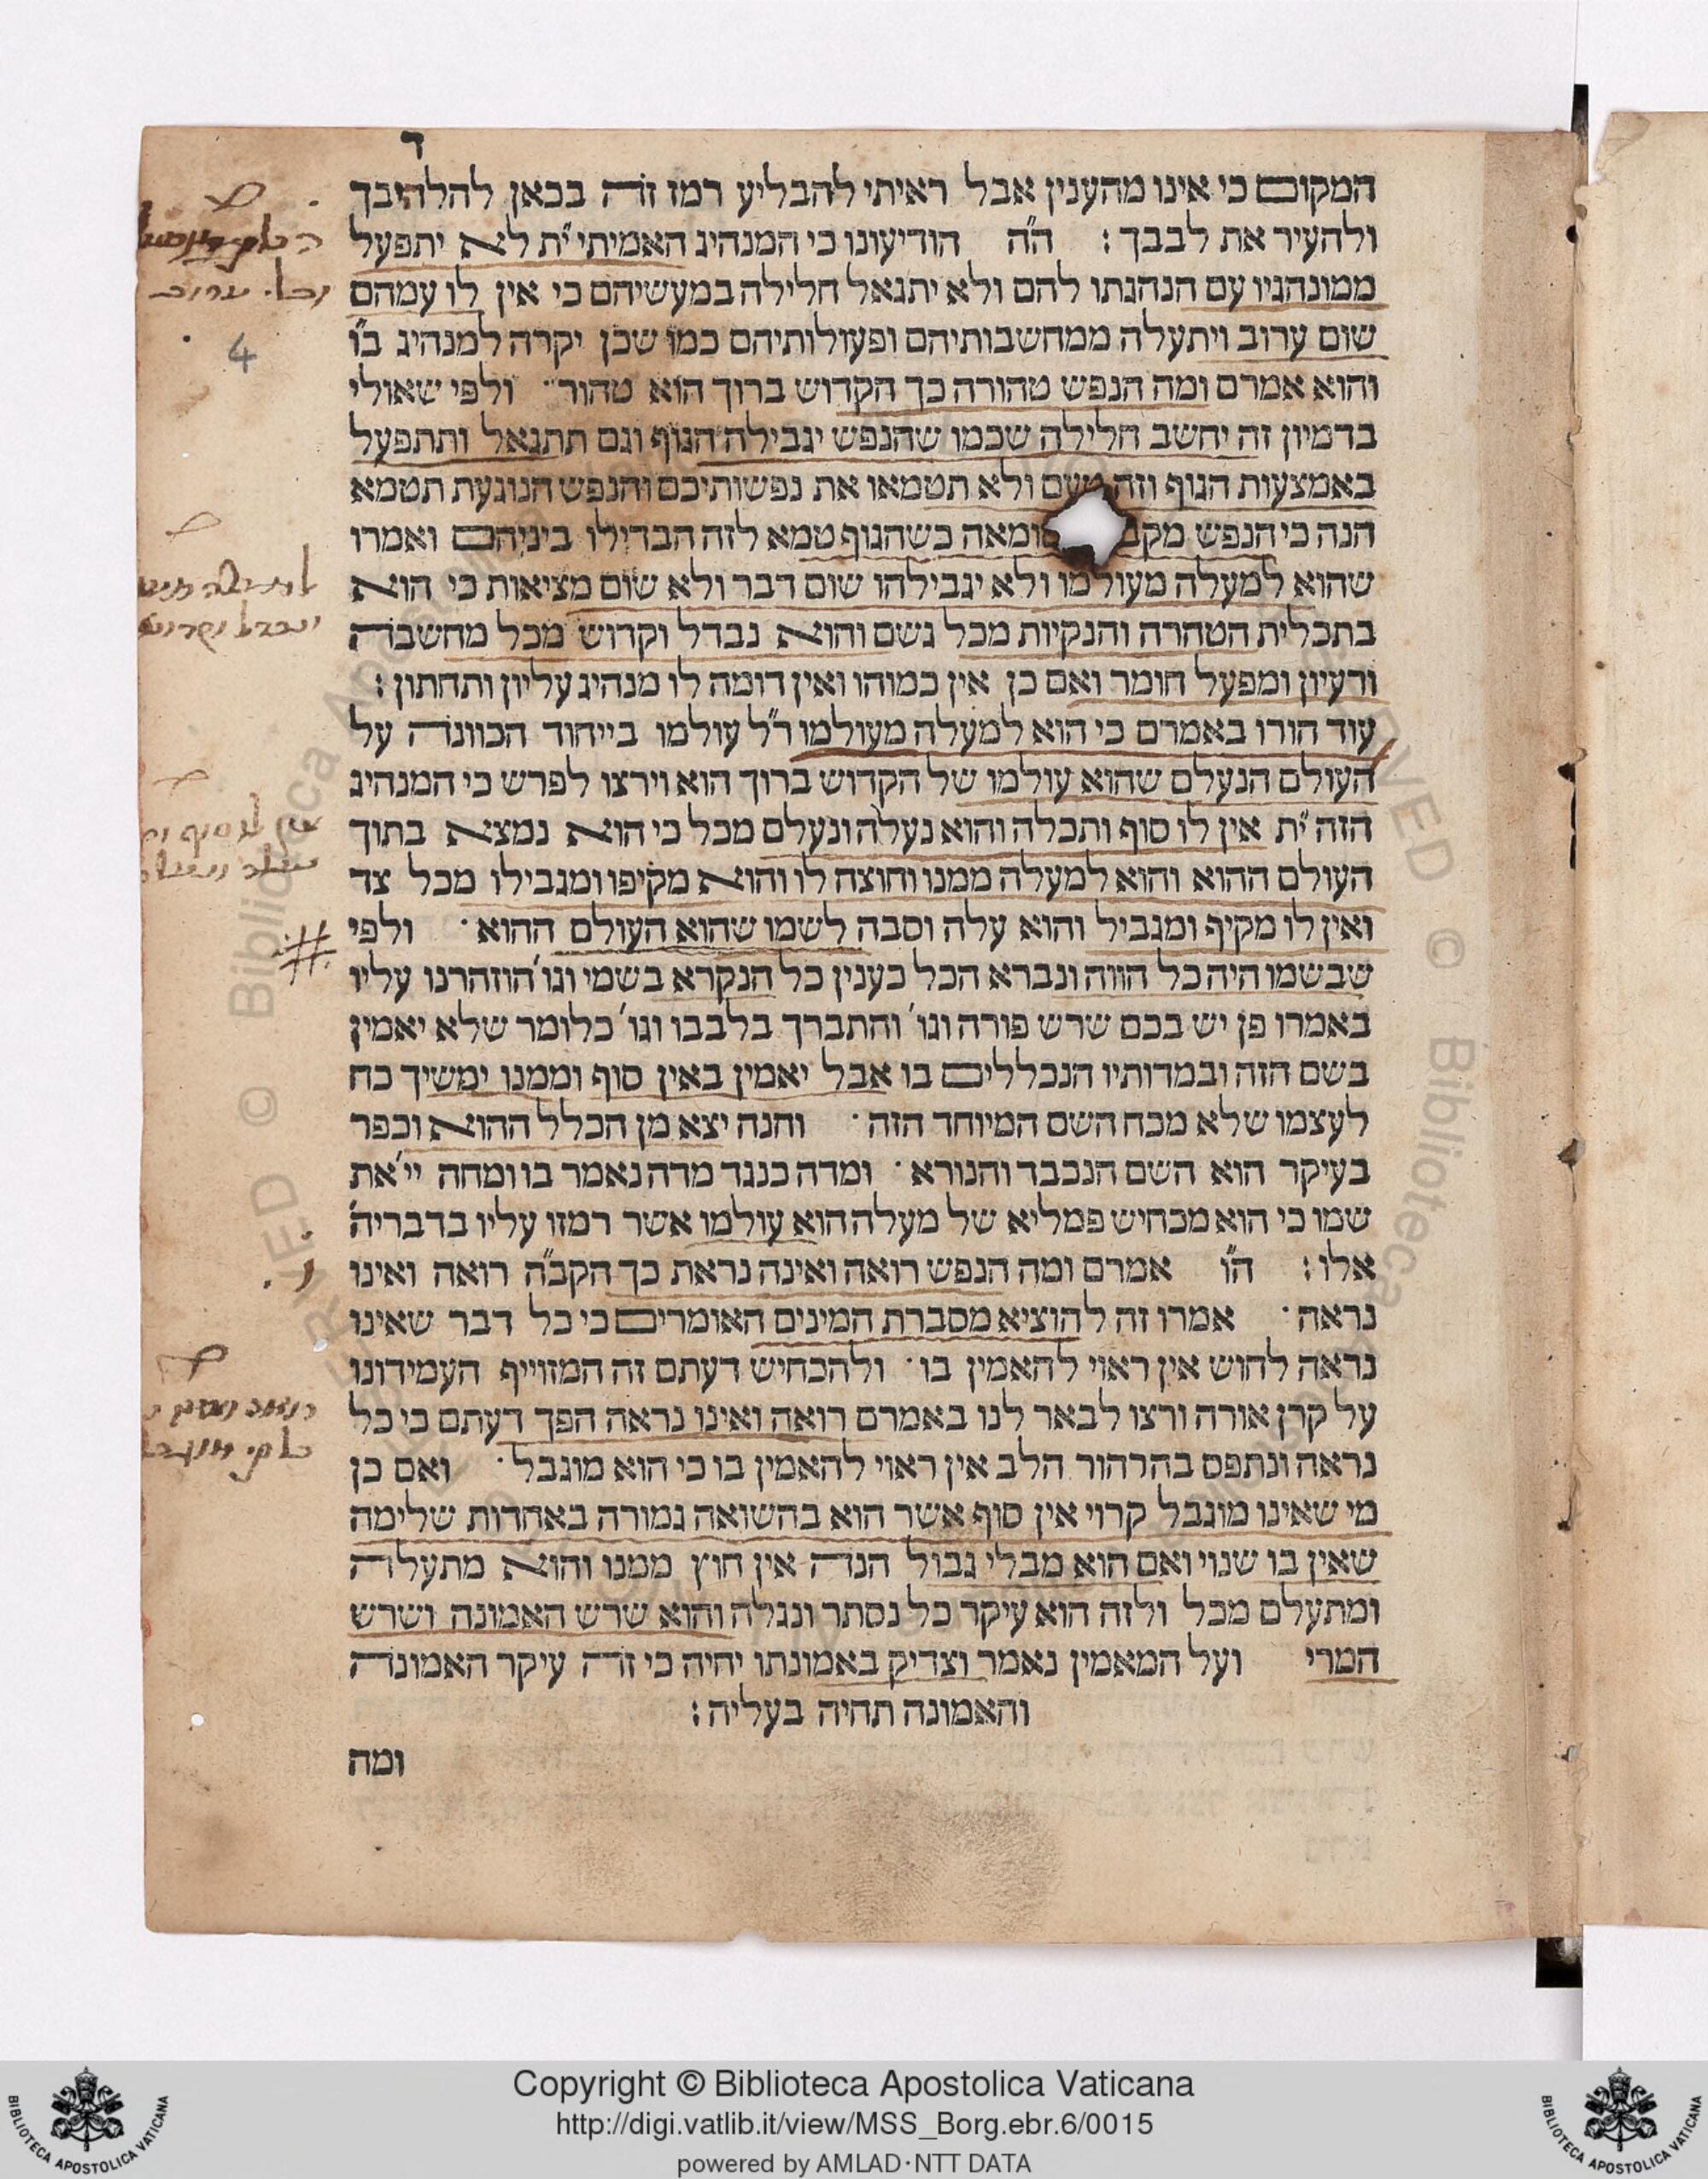 ד
המקום כי אינו מהענין אבל ראיתי להבליע רמז זה בכאן להלהיבך
ולהעיר את לבבך : ה"ה הודיעונו כי המנהיג האמיתי ית' לא יתפעל
ממונהגיו עם הנהגתו להם ולא יתגאל חלילה במעשיהם כי אין לו עמהם
שום ערוב ויתעלה ממחשבותיהם ופעולותיהם כמו שכן יקרה למנהיג ב"ו
והוא אמרם ומה הנפש טהורה כך הקדוש ברוך הוא טהור · ולפי שאולי
בדמיון זה יחשב חלילה שכמו שהנפש יגבילה הגוף וגם תתגאל ותתפעל
באמצעות הגוף וזה טעם ולא תטמאו את נפשותיכם והנפש הנוגעת תטמא
הנה כי הנפש ומאה כשהגוף טמא לזה הבדילו ביניהם ואמרו
שהוא למעלה מעולמו ולא יגבילהו שום דבר ולא שום מציאות כי הוא
בתכלית הטהרה והנקיות מכל גשם והוא נבדל וקדוש מכל מחשבה
ורעיון ומפעל חומר ואם כן אין כמוהו ואין דומה לו מנהיג עליון ותחתון :
עוד הורו באמרם כי הוא למעלה מעולמו ר"ל עולמו בייחוד הכוונה על
העולם הנעלם שהוא עולמו של הקדוש ברוך הוא וירצו לפרש כי המנהיג
הזה ית' אין לו סוף ותכלה והוא נעלה ונעלם מכל כי הוא נמצא בתוך
העולם ההוא והוא למעלה ממנו וחוצה לו והוא מקיפו ומגבילו מכל צד
ואין לו מקיף ומגביל והוא עלה וסבה לשמו שהוא העולם ההוא · ולפי
שבשמו היה כל הווה ונברא הכל כענין כל הנקרא בשמי וגו' הוזהרנו עליו
באמרו פן יש בכם שרש פורה וגו' והתברך בלבבו וגו' כלומר שלא יאמין
בשם הזה ובמדותיו הנכללים בו אבל יאמין באין סוף וממנו ימשיך כח
לעצמו שלא מכח השם המיוחד הזה · והנה יצא מן הכלל ההוא וכפר
בעיקר הוא השם הנכבד והנורא · ומדה כנגד מדה נאמר בו ומחה יי' את
שמו כי הוא מכחיש פמליא של מעלה הוא עולמו אשר רמזו עליו בדבריה'
אלו : ה"ו אמרם ומה הנפש רואה ואינה נראת כך הקב"ה רואה ואינו
נראה · אמרו זה להוציא מסברת המינים האומרים כי כל דבר שאינו
נראה לחוש אין ראוי להאמין בו · ולהכחיש דעתם זה המזוייף העמידונו
על קרן אורה ורצו לבאר לנו באמרם רואה ואינו נראה הפך דעתם כי כל
נראה ונתפס בהרהור הלב אין ראוי להאמין בו כי הוא מוגבל · ואם כן
מי שאינו מוגבל קרוי אין סוף אשר הוא בהשואה גמורה באחדות שלימה
שאין בו שנוי ואם הוא מבלי גבול הנה אין חוץ ממנו והוא מתעלה
ומתעלם מכל ולזה הוא עיקר כל נסתר ונגלה והוא שרש האמונה ושרש
המרי ועל המאמין נאמר וצדיק באמונתו יחיה כי זה עיקר האמונה
והאמונה תהיה בעליה :
ומה
4
Copyright © Biblioteca Apostolica Vaticana
http://digi.vatlib.it/view/MSS_Borg.ebr.6/0015
powered by AMLAD·NTT DATA
BIBLIOTECA APOSTOLICA VATICANA
BIBLIOTECA APOSTOLICA VATICANA